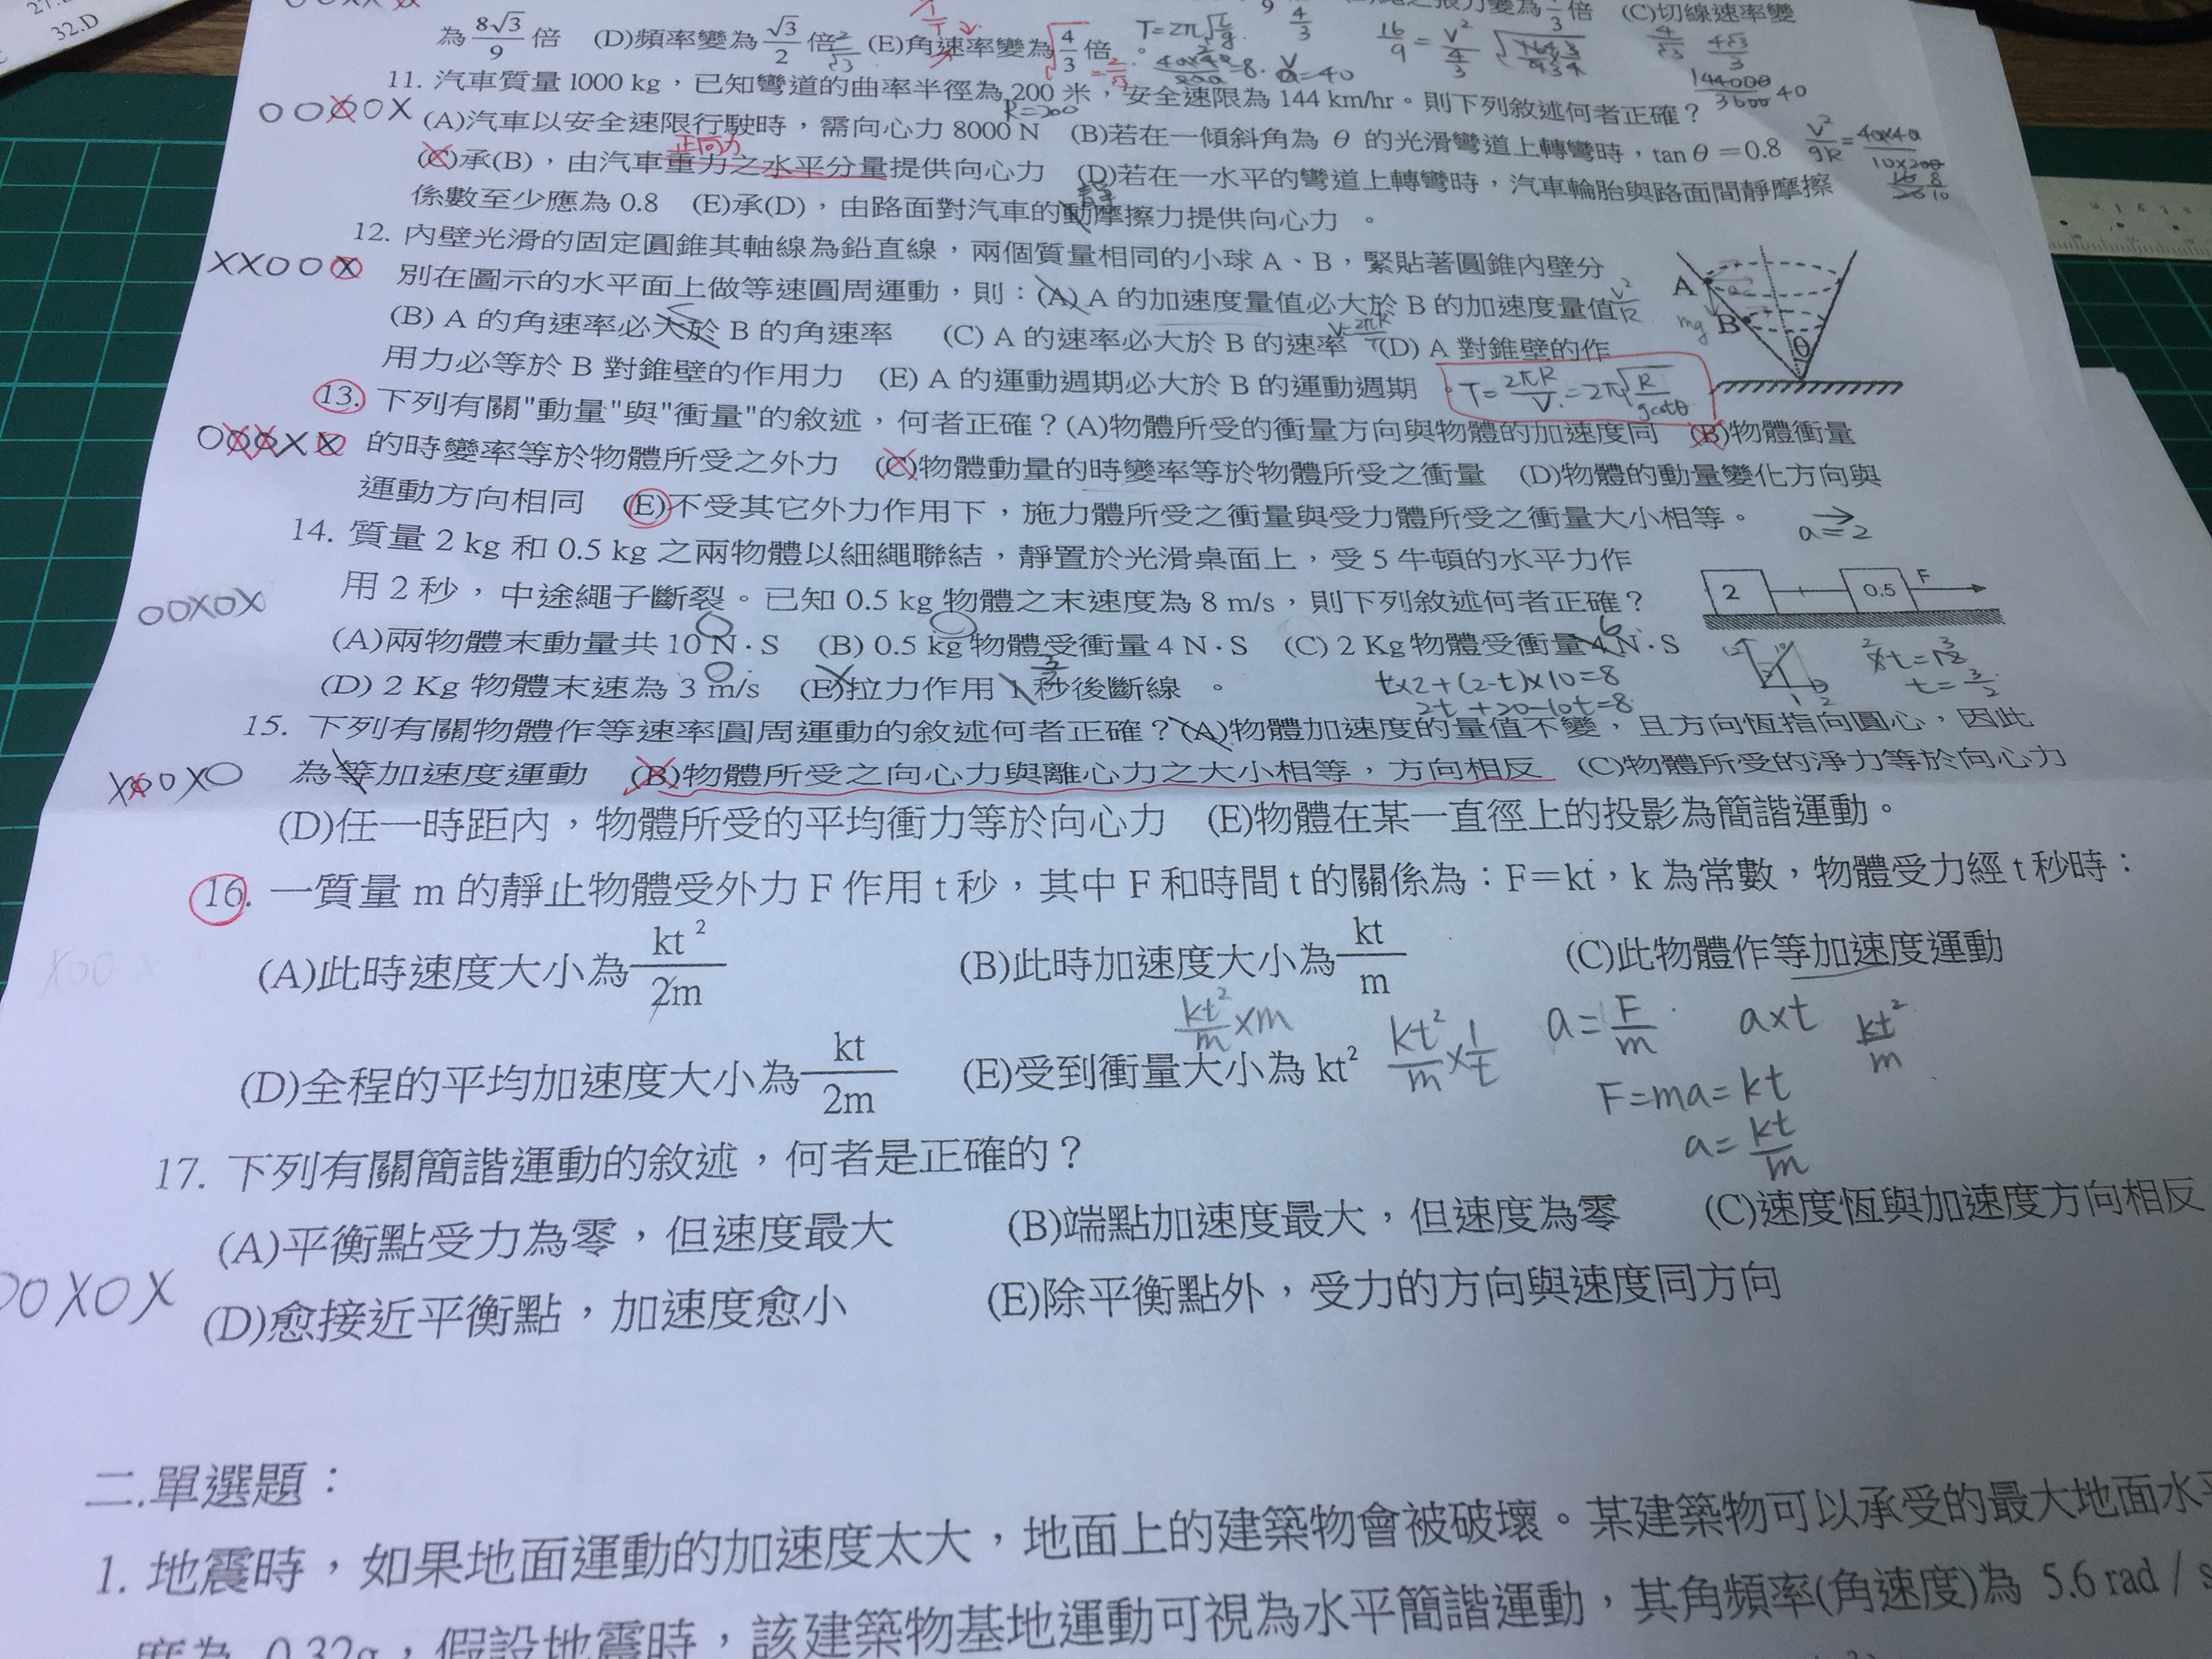 32.D
為 8√3/9 倍 (D)頻率變為 √3/2 倍 (E)角速率變為 √4/3 倍。 T=2π√L/g
(C)切線速率變
11. 汽車質量 1000 kg，已知彎道的曲率半徑為 200 米，安全速限為 144 km/hr。則下列敘述何者正確？
R=200
OOXOX (A)汽車以安全速限行駛時，需向心力 8000 N (B)若在一傾斜角為 θ 的光滑彎道上轉彎時，tan θ = 0.8
正向力
(C)承(B)，由汽車重力之水平分量提供向心力 (D)若在一水平的彎道上轉彎時，汽車輪胎與路面間靜摩擦
係數至少應為 0.8 (E)承(D)，由路面對汽車的動摩擦力提供向心力 。
靜
12. 內壁光滑的固定圓錐其軸線為鉛直線，兩個質量相同的小球 A、B，緊貼著圓錐內壁分
XXOOX 別在圖示的水平面上做等速圓周運動，則：(A) A 的加速度量值必大於 B 的加速度量值
(B) A 的角速率必大於 B 的角速率 (C) A 的速率必大於 B 的速率 (D) A 對錐壁的作
用力必等於 B 對錐壁的作用力 (E) A 的運動週期必大於 B 的運動週期 。
T=2πR/V=2π√R/gcotθ
A
B
mg
θ
13. 下列有關"動量"與"衝量"的敘述，何者正確？(A)物體所受的衝量方向與物體的加速度同 (B)物體衝量
的時變率等於物體所受之外力 (C)物體動量的時變率等於物體所受之衝量 (D)物體的動量變化方向與
運動方向相同 (E)不受其它外力作用下，施力體所受之衝量與受力體所受之衝量大小相等。
14. 質量 2 kg 和 0.5 kg 之兩物體以細繩聯結，靜置於光滑桌面上，受 5 牛頓的水平力作
a=2
用 2 秒，中途繩子斷裂。已知 0.5 kg 物體之末速度為 8 m/s，則下列敘述何者正確？
2 0.5 F
OOXOX (A)兩物體末動量共 10 N·S (B) 0.5 kg 物體受衝量 4 N·S (C) 2 Kg 物體受衝量 4 N·S
6
(D) 2 Kg 物體末速為 3 m/s (E)拉力作用 1 秒後斷線 。
t×2+(2-t)×10=8
2t+20-10t=8
t=3/2
15. 下列有關物體作等速率圓周運動的敘述何者正確？(A)物體加速度的量值不變，且方向恆指向圓心，因此
為等加速度運動 (B)物體所受之向心力與離心力之大小相等，方向相反 (C)物體所受的淨力等於向心力
(D)任一時距內，物體所受的平均衝力等於向心力 (E)物體在某一直徑上的投影為簡諧運動。
16. 一質量 m 的靜止物體受外力 F 作用 t 秒，其中 F 和時間 t 的關係為：F＝kt，k 為常數，物體受力經 t 秒時：
(A)此時速度大小為 kt²/2m (B)此時加速度大小為 kt/m (C)此物體作等加速度運動
kt²/m ×m kt²/m × 1/t a=F/m a×t kt²/m
(D)全程的平均加速度大小為 kt/2m (E)受到衝量大小為 kt²
F=ma=kt
a=kt/m
17. 下列有關簡諧運動的敘述，何者是正確的？
(A)平衡點受力為零，但速度最大 (B)端點加速度最大，但速度為零 (C)速度恆與加速度方向相反
OOXOX (D)愈接近平衡點，加速度愈小 (E)除平衡點外，受力的方向與速度同方向
二.單選題：
1. 地震時，如果地面運動的加速度太大，地面上的建築物會被破壞。某建築物可以承受的最大地面水平
度為 0.32g，假設地震時，該建築物基地運動可視為水平簡諧運動，其角頻率(角速度)為 5.6 rad / s